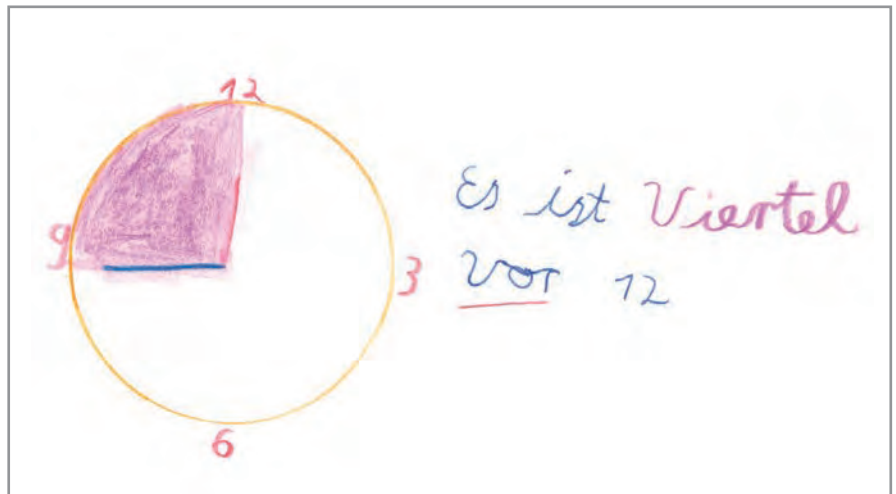 12
9
3
6
Es ist Viertel
vor 12